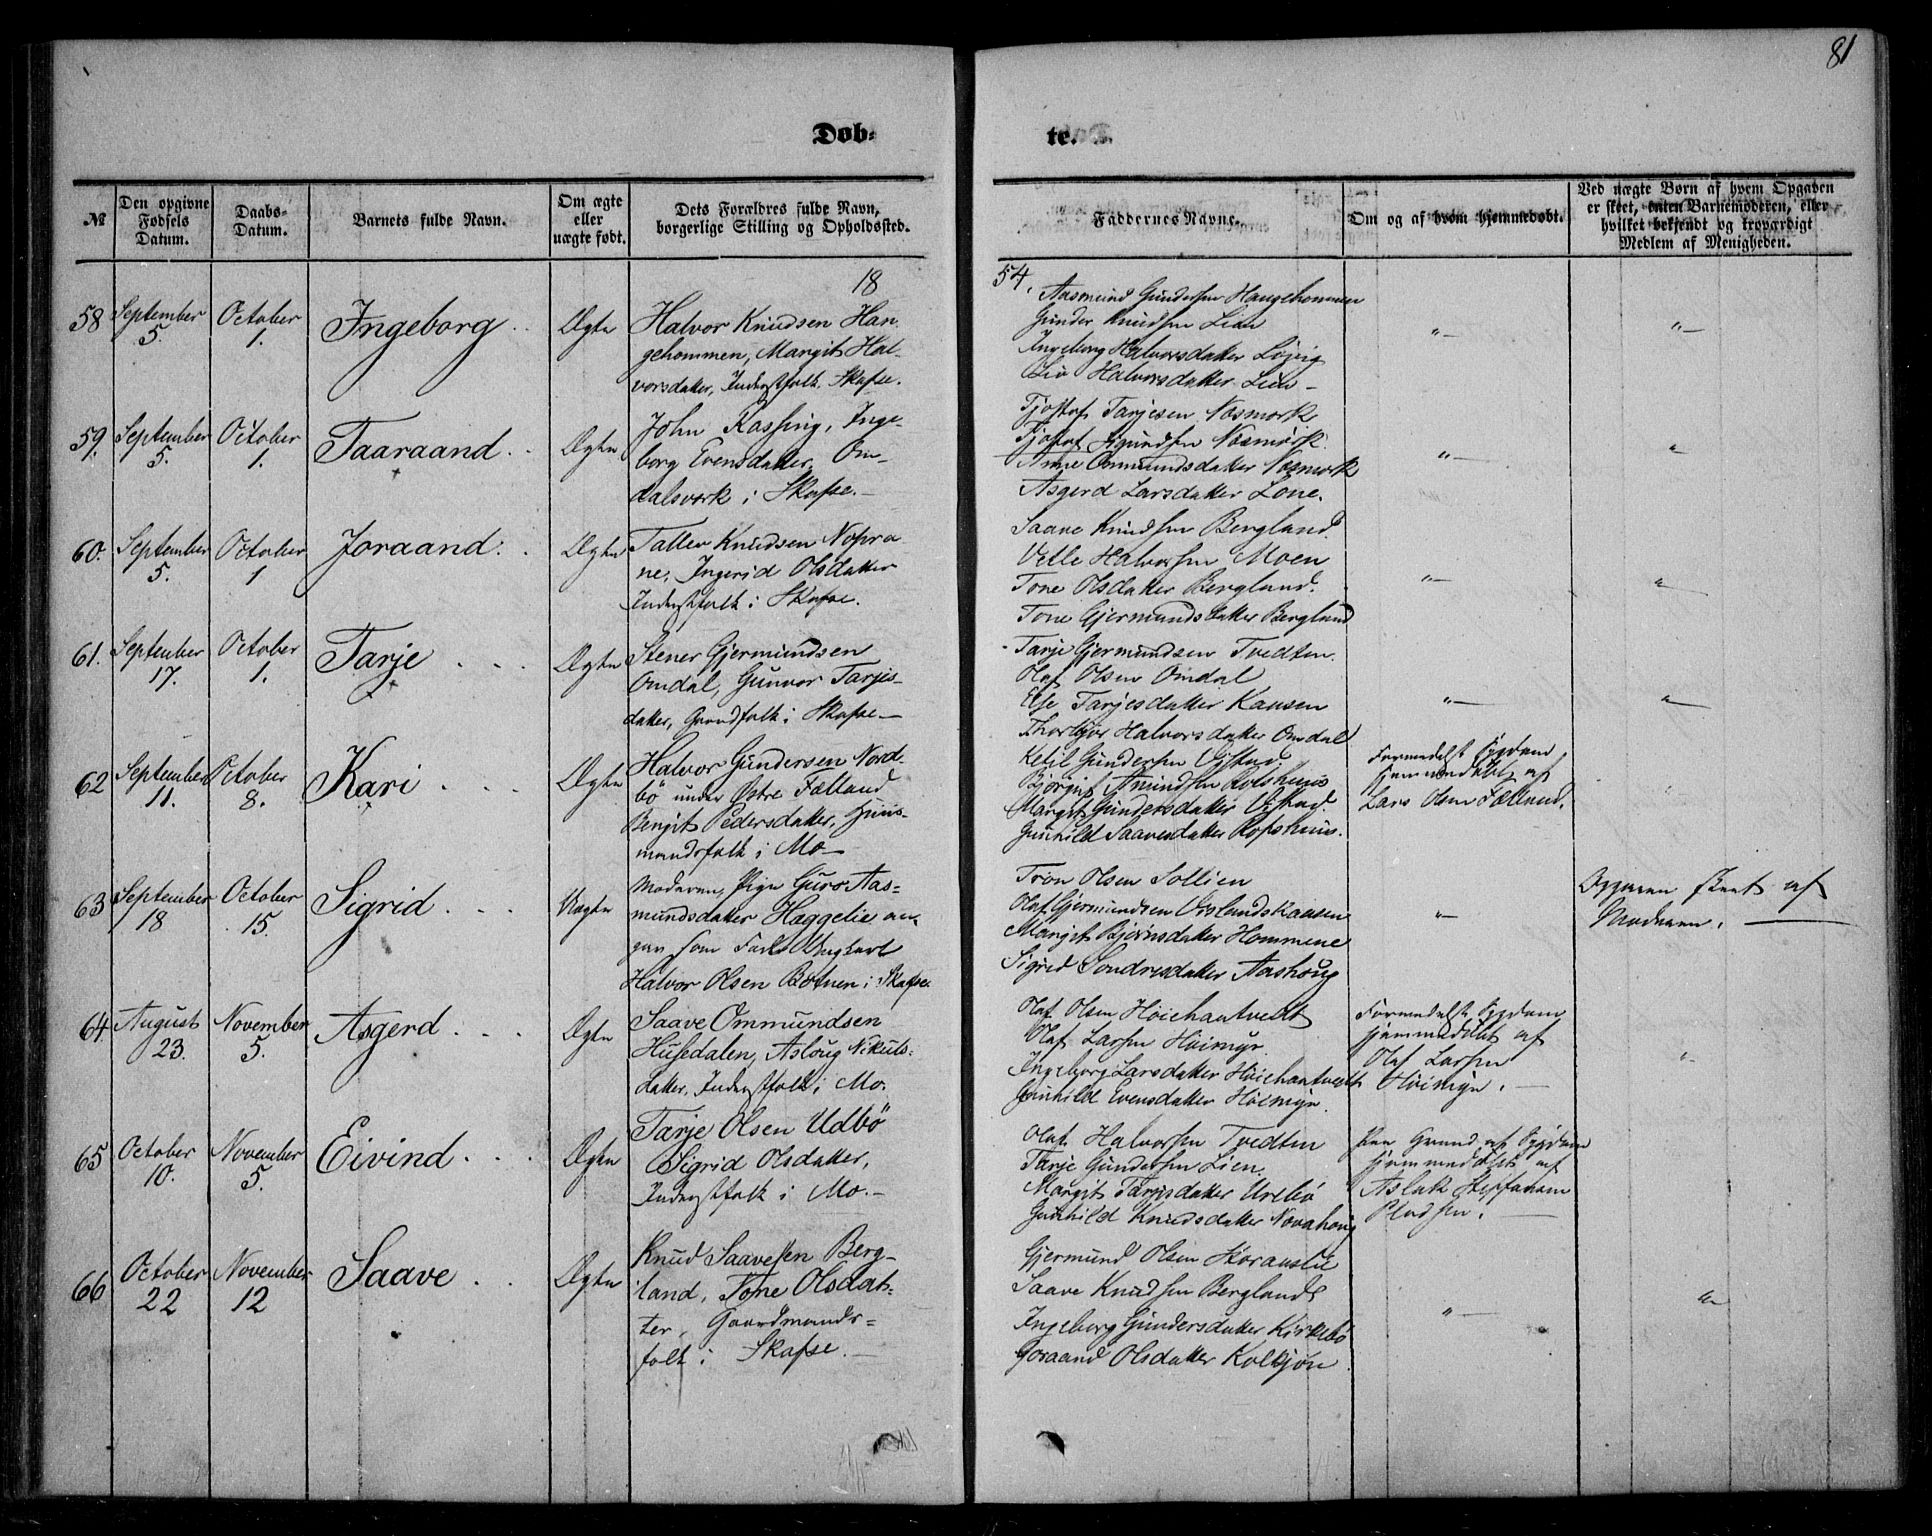 81
Døb-
te.
№
Den opgivne Fødsels Datum.
Daabs-Datum.
Barnets fulde Navn.
Om ægte eller uægte født.
Dets Forældres fulde Navn, borgerlige Stilling og Opholdssted.
Faddernes Navne.
Om og af hvem hjemmedøbt.
Ved uægte Børn af hvem Opgaven er skeet, enten Barnemoderen, eller hvilket bekjendt og troværdigt Medlem af Menigheden.
18
54.
58 September 5. October 1. Ingeborg Ægte
Halvor Knudsen Han-
gehommen, Margit Hal-
vorsdatter, Inderstfolk. Skafse.
Aasmund Gundersen Haugehommen
Gunder Knudsen Lien
Ingeborg Halvorsdatter
Liv Halvorsdatter Lien
"— "—
59. September 5. October 1. Taaraand Ægte
John Kassing, Inge-
borg Evensdatter, Om-
dalsverk i Skafse.—
Tjostof Tarjesen Næsmork
Tjostof Næsmork
Anne Ommundsdatter Næsmork
Asgerd Larsdatter Lone.
"— "
60. September 5. October 1 Joraand Ægte
Tallev Knudsen Nopra
ne, Ingerid Olsdatter
Inderstfolk i Skafse.
Saave Knudsen Bergland
Vetle Halvorsen Moen
Tone Olsdatter Bergland.
Tone Gjermundsdatter Bergland
"— "
61. September 17. October 1. Tarje Ægte
Stener Gjermundsen
Omdal, Gunvor Tarjes-
datter, Gaardfolk i Skafse.—
Tarje Gjermundsen Tvedten.
Olaf Olsen Omdal
Else Tarjesdatter Kaasen
Halvorsdatter Omdal
"— "—
62 September 11. October 8. Kari Ægte
Halvor Gundersen Nord-
bö under Østre Fælland
Bengit Pedersdatter, Huus-
mandsfolk i Mo—
Ketil Gundersen Vistad
Rofshuus
Margit Gundersdatter Vistad.
Gunhild Saavesdatter Rofshuus.
Formedelst Sygdom
hjemmedøbt af
Lars Olsen Fælland.
"
63 September 18 October 15. Sigrid Uægte
Moderen, Pige Guro Aas-
mundsdatter Haggelie an-
gav som Fader Ungkarl
Halvor Olsen Botnen i Skafse.
Tron Olsen Sollien
Olaf Gjermundsen
Margit Bjørnsdatter Hommene
Sigrid Sondresdatter Aashoug
"—
Opgaven skeet af
Moderen.
64 August 23. November 5. Asgerd Ægte
Saave Ommundsen
Husedalen, Asloug Nikuls-
datter, Inderstfolk i Mo.
Olaf Olsen Høichantvedt
Olaf Larsen Høimyr.
Ingeborg Larsdatter Høichantvedt
Gunhild Evensdatter Høimyr.
Formedelst Sygdom
hjemmedøbt af
Olaf Larsen
Høimyr.—
"
65 October 10. November 5. Eivind Ægte
Tarje Olsen Udbö
Sigrid Olsdatter,
Inderstfolk i Mo.—
Olaf Halvorsen Tvedten
Tarje Gundersen Lien.
Margit Tarjesdatter Urebø
Gunhild Knudsdatter Novahoug
Paa Grund af Sygdom
hjemmedøbt af
Aslak
Pladsen.
66 October 22 November 12 Saave Ægte
Knud Saavesen Berg-
land, Tone Olsdat-
ter, Gaardmands-
folk i Skafse.—
Gjermund Olsen
Saave Knudsen Bergland
Ingeborg Gundersdatter Kirkebø
Joraand Olsdatter Kolkjøn.
"— "